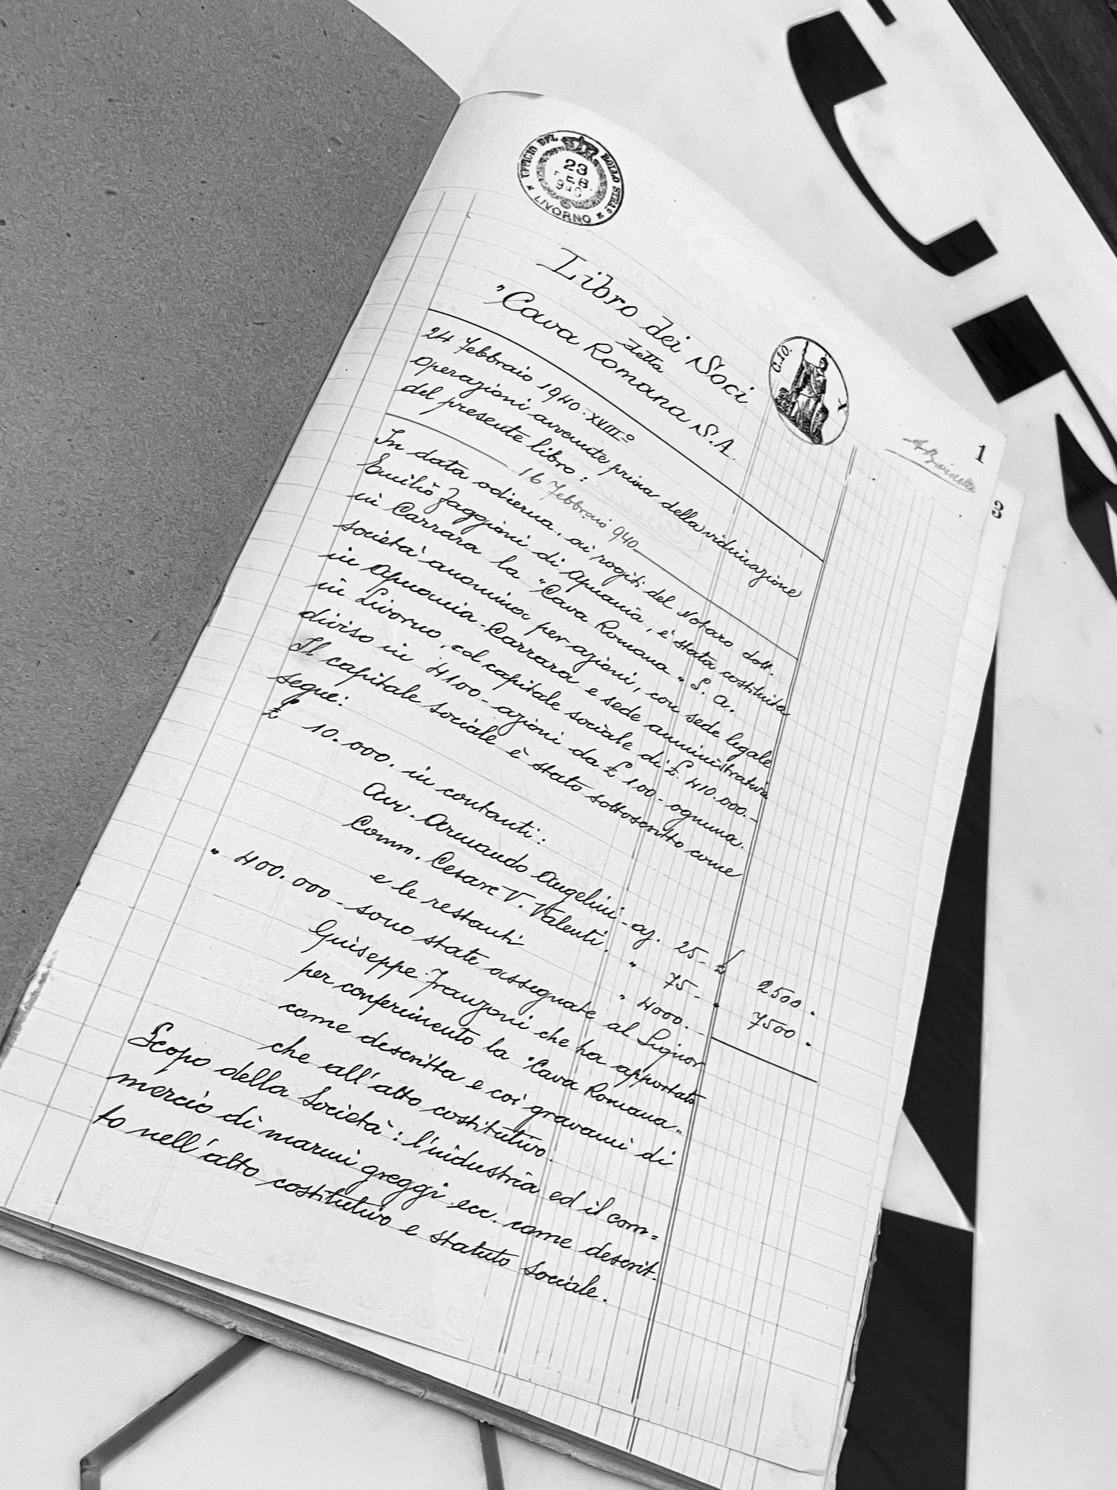 UFFICIO DEL BOLLO STRAORD.
23
FEB
940
LIVORNO
Libro dei Soci
della
"Cava Romana S.A.
C.10.
1
3
24 Febbraio 1940. XVIII°
operazioni avvenute prima della vidimazione
del presente libro:
16 Febbraio 940
In data odierna, ai rogiti del Notaro dott.
Emilio Faggioni di Apuania, è stata costituita
in Carrara la "Cava Romana" S. A.
società anonima per azioni, con sede legale
in Apuania-Carrara e sede amministrativa
in Livorno, col capitale sociale di £. 410.000.-
diviso in 4100- azioni da £ 100- ognuna.
Il capitale sociale è stato sottoscritto come
segue:
£ 10.000. in contanti:
Avv. Armando Angelini - az. 25- £ 2500.
Comm. Cesare V. Valenti. " 75- " 7500.
e le restanti " 4000.-
" 400.000- sono state assegnate al Signor
Giuseppe Franzoni che ha apportato
per conferimento la "Cava Romana"
come descritta e coi gravami di
che all'atto costitutivo.
Scopo della Società: l'industria ed il com=
mercio di marmi greggi ecc. come descrit-
to nell'atto costitutivo e statuto sociale.